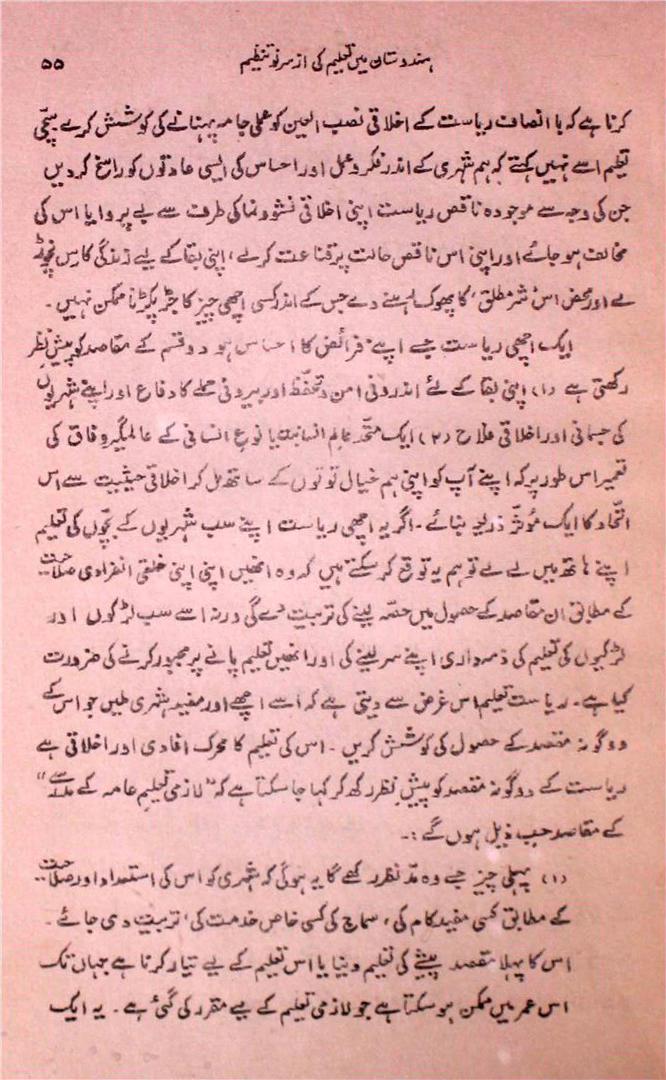 ہندوستان میں تعلیم کی از سر نو تنظیم ۵۵
کرنا ہے کہ با انصاف ریاست کے اخلاقی نصب العین کو عملی جامہ پہنانے کی کوشش کرے سچّی
تعلیم اسے نہیں کہتے کہ ہم شہری کے اندر فکر و عمل اور احساس کی ایسی عادتوں کو راسخ کر دیں
جن کی وجہ سے موجودہ ناقص ریاست اپنی اخلاقی نشو و نما کی طرف سے بے پروا یا اس کی
مخالف ہو جائے اور اپنی اس ناقص حالت پر قناعت کرلے، اپنی بقا کے لیے زندگی کا رس نچوڑ
لے اور محض اس 'شر مطلق' کا پھوک رہنے دے جس کے اندر کسی اچھی چیز کا جڑ پکڑنا ممکن نہیں۔
ایک اچھی ریاست جسے اپنے فرائض کا احساس ہو دو قسم کے مقاصد کو پیش نظر
رکھتی ہے (۱) اپنی بقا کے لئے اندرونی امن و تحفّظ اور بیرونی حملے کا دفاع اور اپنے شہریوں
کی جسمانی اور اخلاقی فلاح (۲) ایک متّحد عالم انسانیت یا نوع انسانی کے عالمگیر وفاق کی
تعمیر اس طور پر کہ اپنے آپ کو اپنی ہم خیال قوتوں کے ساتھ مل کر اخلاقی حیثیت سے اس
اتّحاد کا ایک مؤثّر ذریعہ بنائے۔ اگر یہ اچھی ریاست اپنے سب شہریوں کے بچّوں کی تعلیم
اپنے ہاتھ میں لے لے تو ہم یہ توقع کر سکتے ہیں کہ وہ انھیں اپنی اپنی خلقی انفرادی صلاحیت
کے مطابق ان مقاصد کے حصول میں حصّہ لینے کی تربیت دے گی ورنہ اسے سب لڑکوں اور
لڑکیوں کی تعلیم کی ذمہ داری اپنے سر لینے کی اور انھیں تعلیم پانے پر مجبور کرنے کی ضرورت
کیا ہے۔ ریاست تعلیم اس غرض سے دیتی ہے کہ اسے اچھے اور مفید شہری ملیں جو اس کے
دوگونہ مقصد کے حصول کی کوشش کریں۔ اس کی تعلیم کا محرک افادی اور اخلاقی ہے
ریاست کے دوگونہ مقصد کو پیش نظر رکھ کر کہا جا سکتا ہے کہ "لازمی تعلیم عامہ کے مدرسے"
کے مقاصد حسب ذیل ہوں گے :۔
(۱) پہلی چیز جسے وہ مدّ نظر رکھے گا یہ ہوگی کہ شہری کو اس کی استعداد اور صلاحیت
کے مطابق کسی مفید کام کی، سماج کی کسی خاص خدمت کی، تربیت دی جائے۔
اس کا پہلا مقصد پیشے کی تعلیم دینا یا اس تعلیم کے لیے تیار کرنا ہے جہاں تک
اس عمر میں ممکن ہو سکتا ہے جو لازمی تعلیم کے لیے مقرر کی گئی ہے۔ یہ ایک